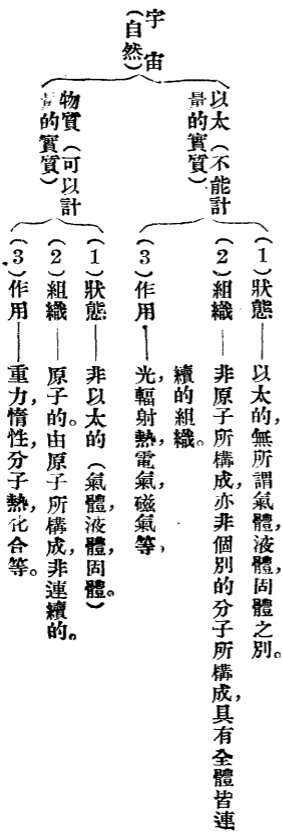 宇宙
(自然)
以太(不能計
量的實質)
(1)狀態——以太的,無所謂氣體,液體,固體之別。
(2)組織——非原子所構成,亦非個別的分子所構成,具有全體皆連
續的組織。
(3)作用——光,輻射熱,電氣,磁氣等,
物質(可以計
量的實質)
(1)狀態——非以太的(氣體,液體,固體。)
(2)組織——原子的。由原子所構成,非連續的。
(3)作用——重力,惰性,分子熱,化合等。